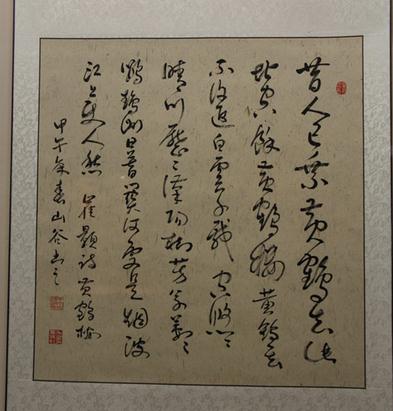 昔人已乘黄鶴去此
地空餘黄鶴樓黄鶴一去
不復返白雲千載空悠悠
晴川歷歷漢陽樹芳草萋萋
鸚鵡洲日暮鄉關何處是烟波
江上使人愁 崔顥詩黄鶴樓
甲午年春山谷書之